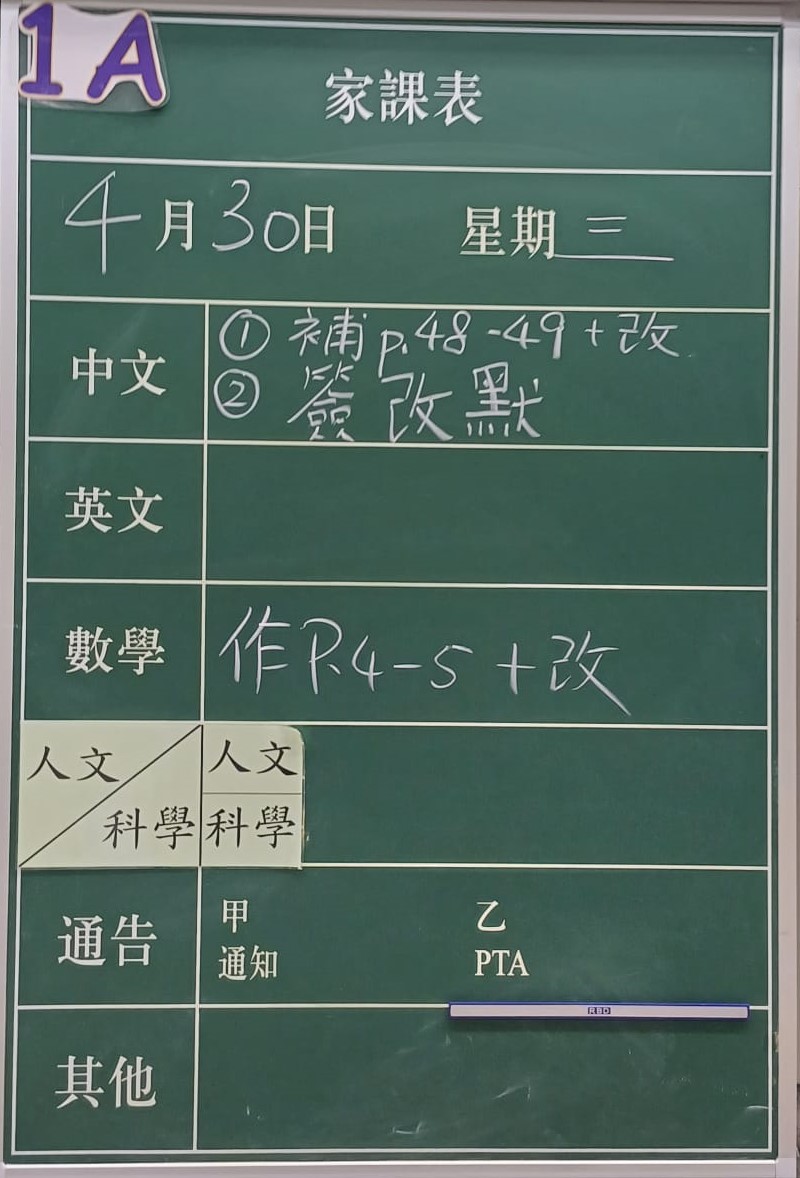 1A
家課表
4月30日 星期三
中文 ① 補 p.48-49+改
② 簽改默
英文
數學 作 P.4-5 +改
人文 人文
科學 科學
通告 甲 乙
通知 PTA
RBD
其他